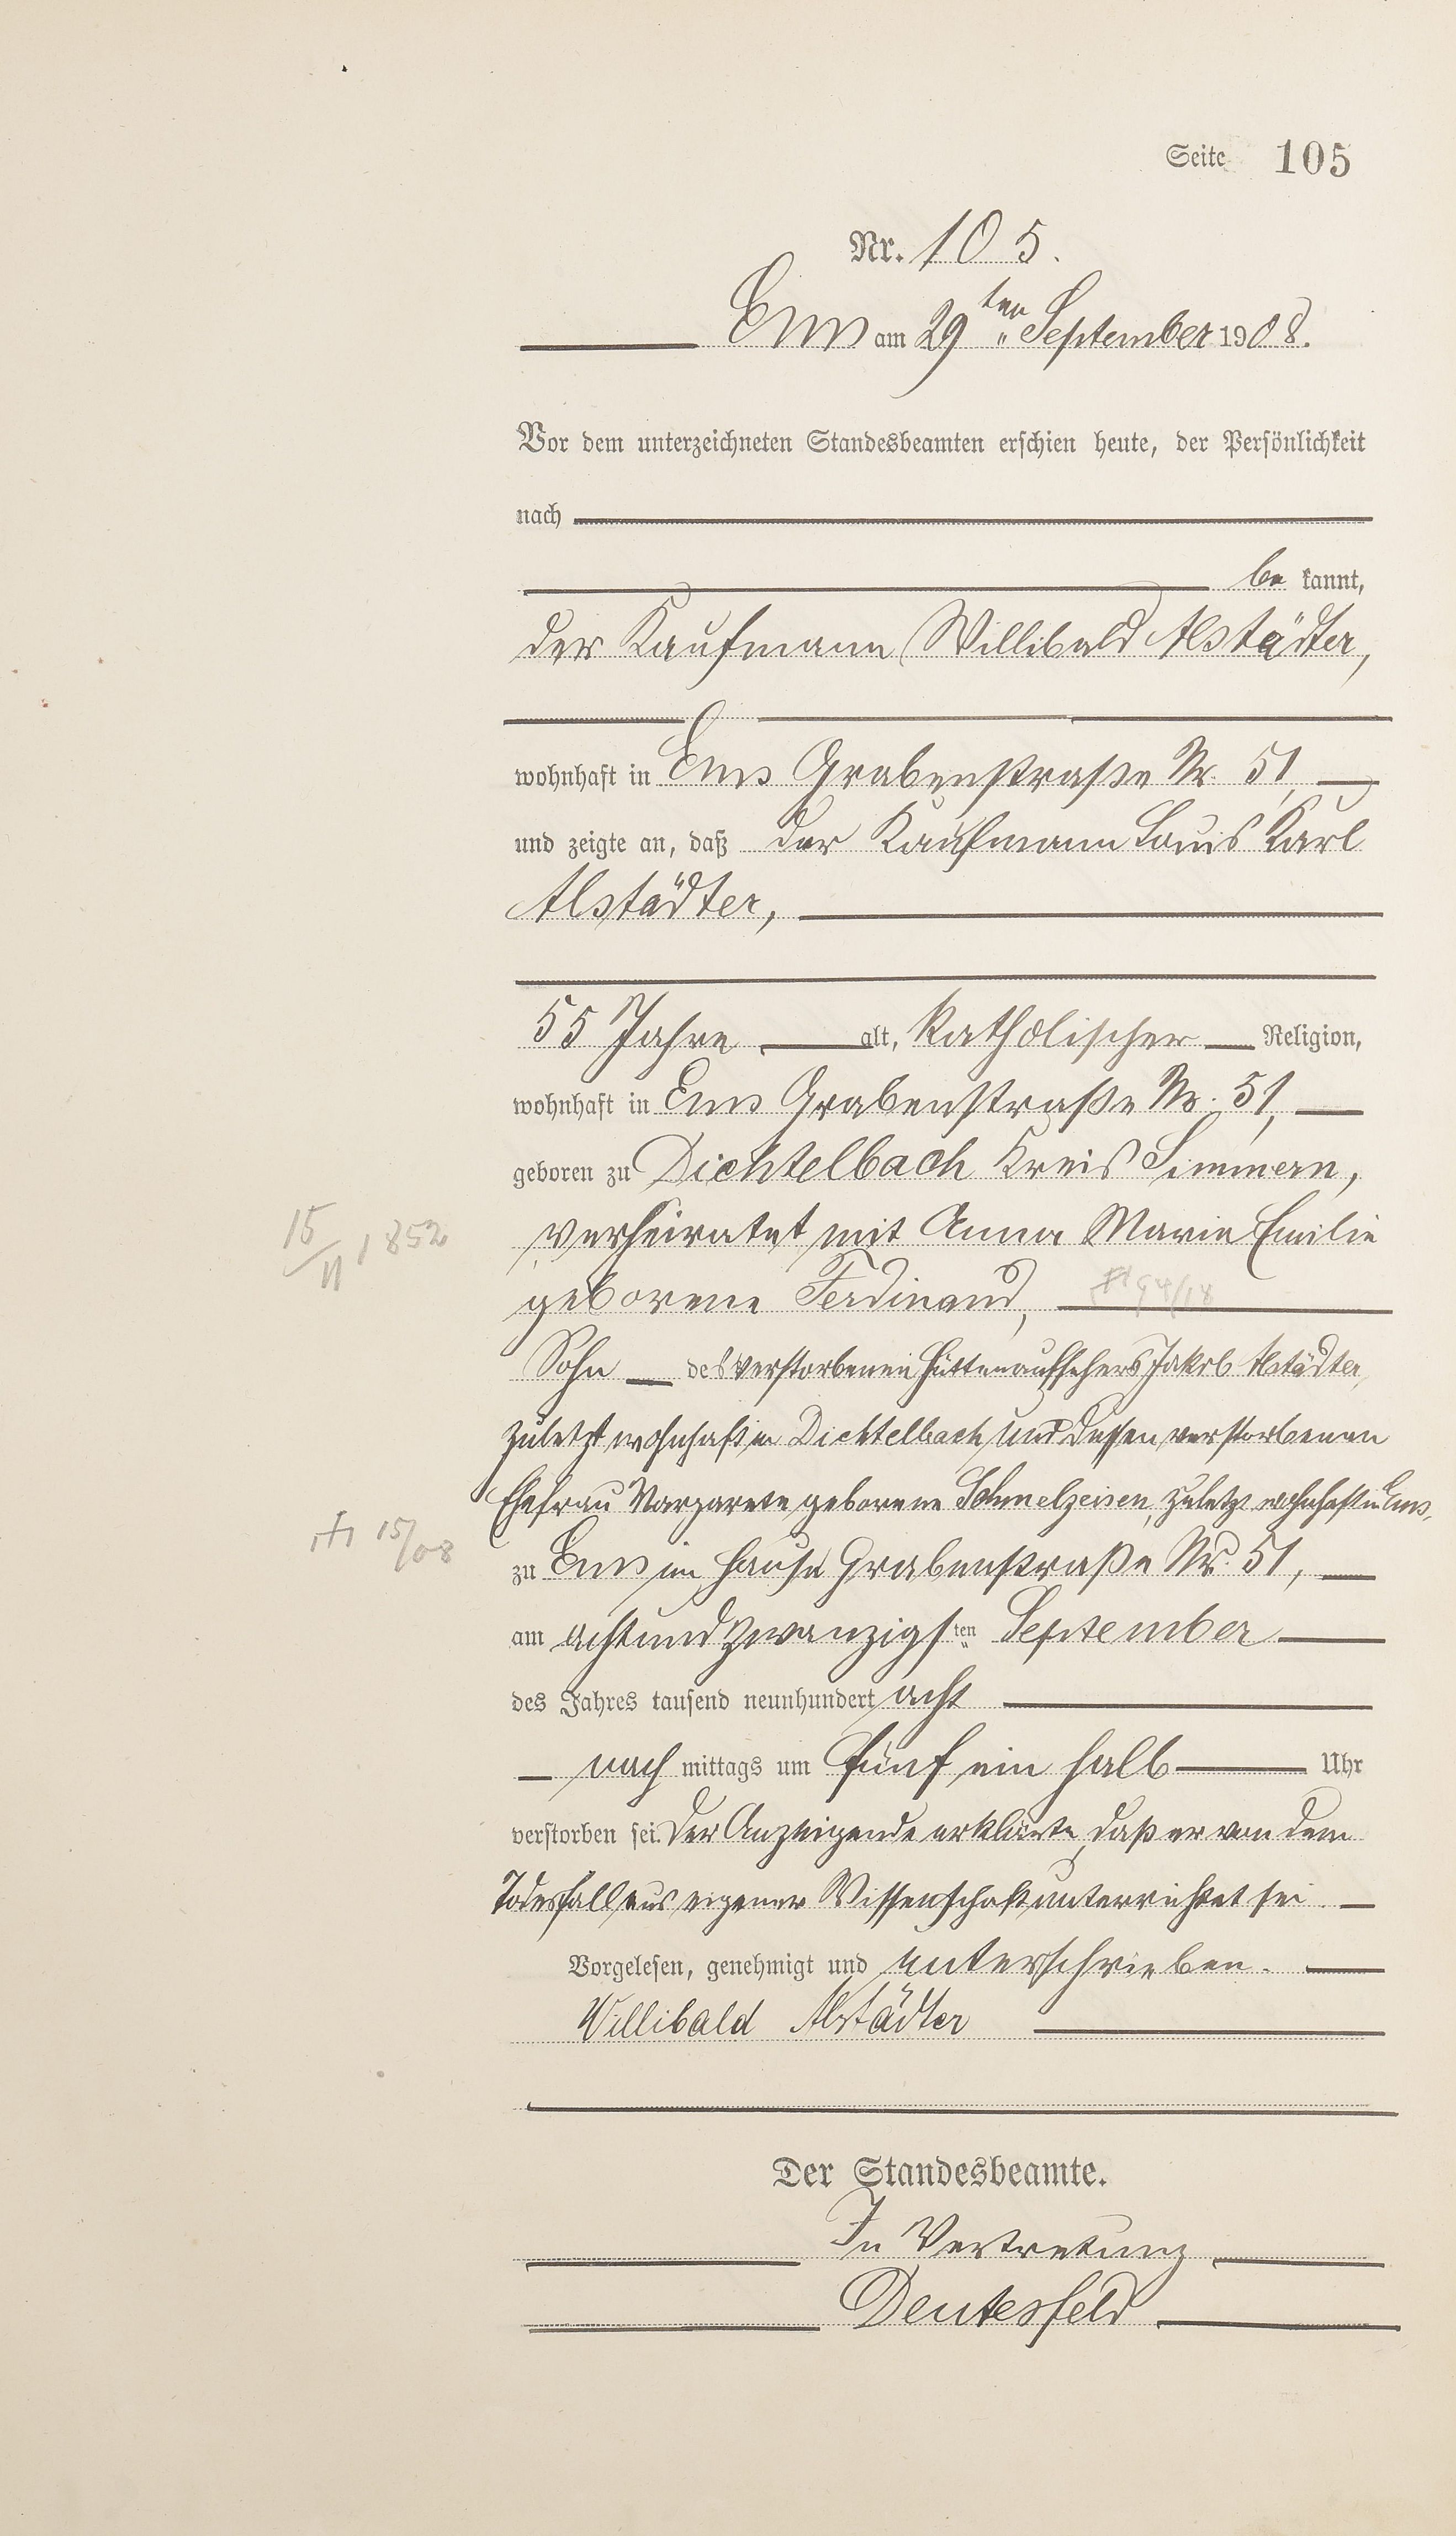 Seite 105
Nr. 105.
Ems am 29ten September 1908.
Vor dem unterzeichneten Standesbeamten erschien heute, der Persönlichkeit
nach
be kannt,
der Kaufmann Willibald Alstädter,
wohnhaft in Ems Grabenstraße Nr. 51,
und zeigte an, daß der Kaufmann Louis Karl
Alstädter,
55 Jahre alt, katholischer Religion,
wohnhaft in Ems Grabenstraße Nr. 51,
geboren zu Dichtelbach Kreis Simmern,
15/11 1852
verheiratet mit Anna Maria Emilie
geborene Ferdinand, 94/18
Sohn des verstorbenen Hüttenaufsehers Jakob Alstädter,
zuletzt wohnhaft in Dichtelbach und dessen verstorbenen
Ehefrau Margarete geborene Schmelzeisen, zuletzt wohnhaft in Ems,
15/08
zu Ems im Hause Grabenstraße Nr. 51,
am achtundzwanzigsten September
des Jahres tausend neunhundert acht
nach mittags um fünf ein halb Uhr
verstorben sei. Der Anzeigende erklärte, daß er von dem
Todesfall aus eigener Wissenschaft unterrichtet sei.
Vorgelesen, genehmigt und unterschrieben.
Willibald Alstädter
Der Standesbeamte.
In Vertretung
Deutesfeld